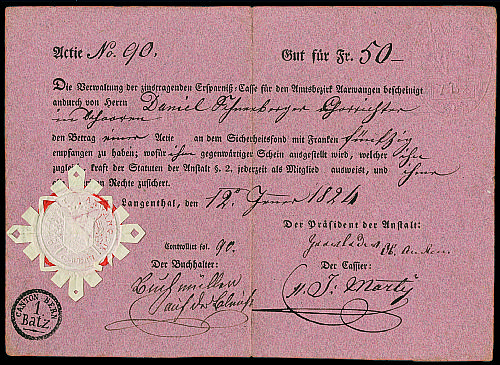 Actie No. 90. Gut für Fr. 50–
Die Verwaltung der zinstragenden Ersparniß-Casse für den Amtsbezirk Aarwangen bescheinigt
andurch von Herrn Daniel
in Schooren
den Betrag einer Actie an dem Sicherheitsfond mit Franken fünfzig
empfangen zu haben; wofür ihm gegenwärtiger Schein ausgestellt wird, welcher ihn
zugleich kraft der Statuten der Anstalt §. 2. jederzeit als Mitglied ausweist, und ihme
Rechte zusichert.
Langenthal, den 12. 1824
Der Präsident der Anstalt:
Controllirt fol. 90.
Der Buchhalter: Der Cassier:
Buchmüller
J. Marti
CANTON BERN
1
Batz